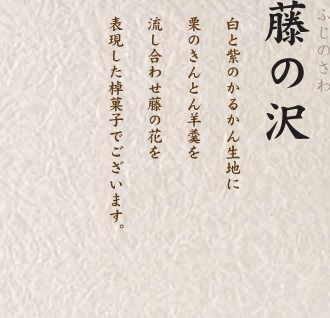 ふじのさわ
藤の沢
白と紫のかるかん生地に
栗のきんとん羊羹を
流し合わせ藤の花を
表現した棹菓子でございます。